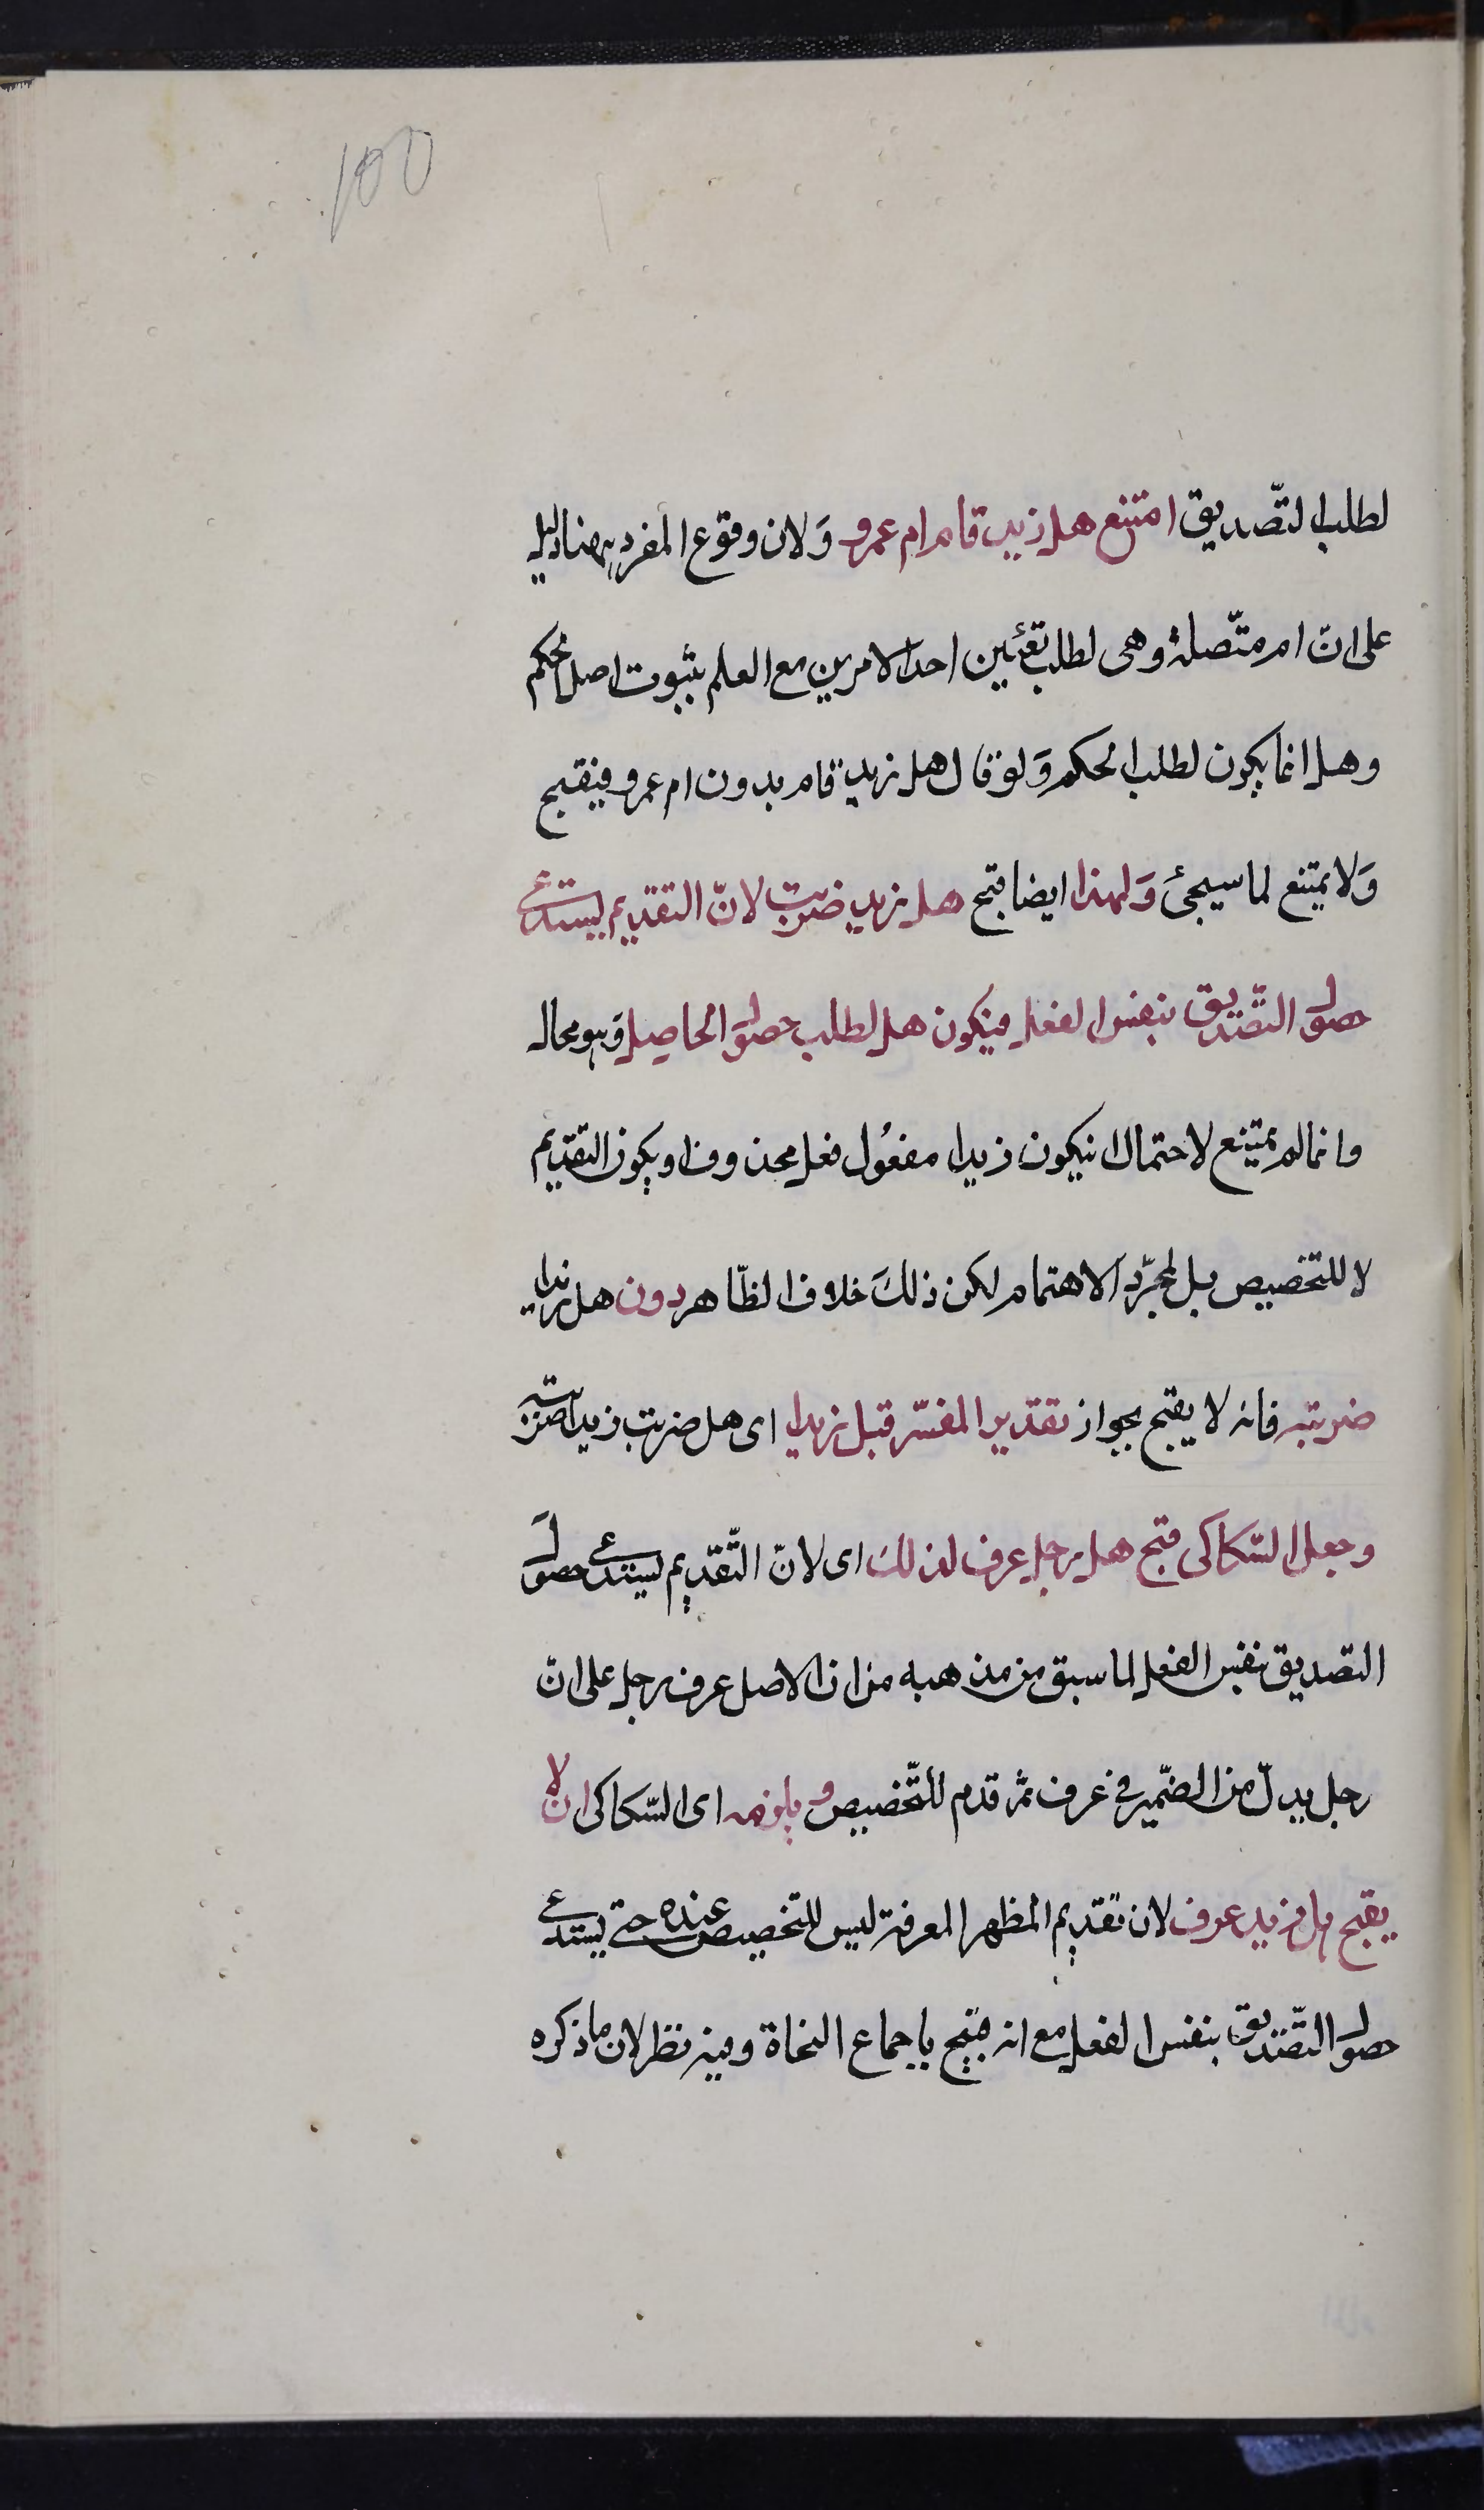 ١٥٥
لطلب التّصديق امتنع هل زيد قام ام عمرو وَلان وقوع المفرد ههنا دليل
على انّ ام متّصلة وهى لطلب تعيين احد الامرين مع العلم بثبوت اصل الحكم
وهل انما يكون لطلب الحكم وَلو قال هل زيد قام بدون ام عمرو فيقبح
وَلا يمتنع لما سيجئ وَلهذا ايضا قبح هل زيد ضربت لانّ التقديم يستدعى
حصول التّصديق بنفس الفعل فيكون هل لطلب حصول الحاصِل وَهو محال
وانما لم يمتنع لاحتمال ان يكون زيدا مفعُول فعل محذوف او يكون التقديم
لا للتخصيص بل لمجرّد الاهتمام لكن ذلكَ خلاف الظّاهر دون هل زيدا
ضربته فانه لا يقبح بجواز تقدير المفسّر قبل زيدا اى هل ضربت زيدا ضربته
وجعل السّكاكى قبح هل رجل عرف لذلك اى لانّ التّقديم يستدعى حصولَ
التصديق بنفس الفعل لما سبق من مذهبه من ان الاصل عرف رجل على انّ
رجل بدلّ من الضّمير فى عرف ثمّ قدم للتّخصيص ويلزمه اى السّكاكى ان لا
يقبح هل زيد عرف لان تقديم المظهر المعرفة ليس للتخصيص عنده حتى يستدعى
حصول التّصديق بنفس الفعل مع انه قبيح باجماع النحاة وفيه نظر لان ما ذكره